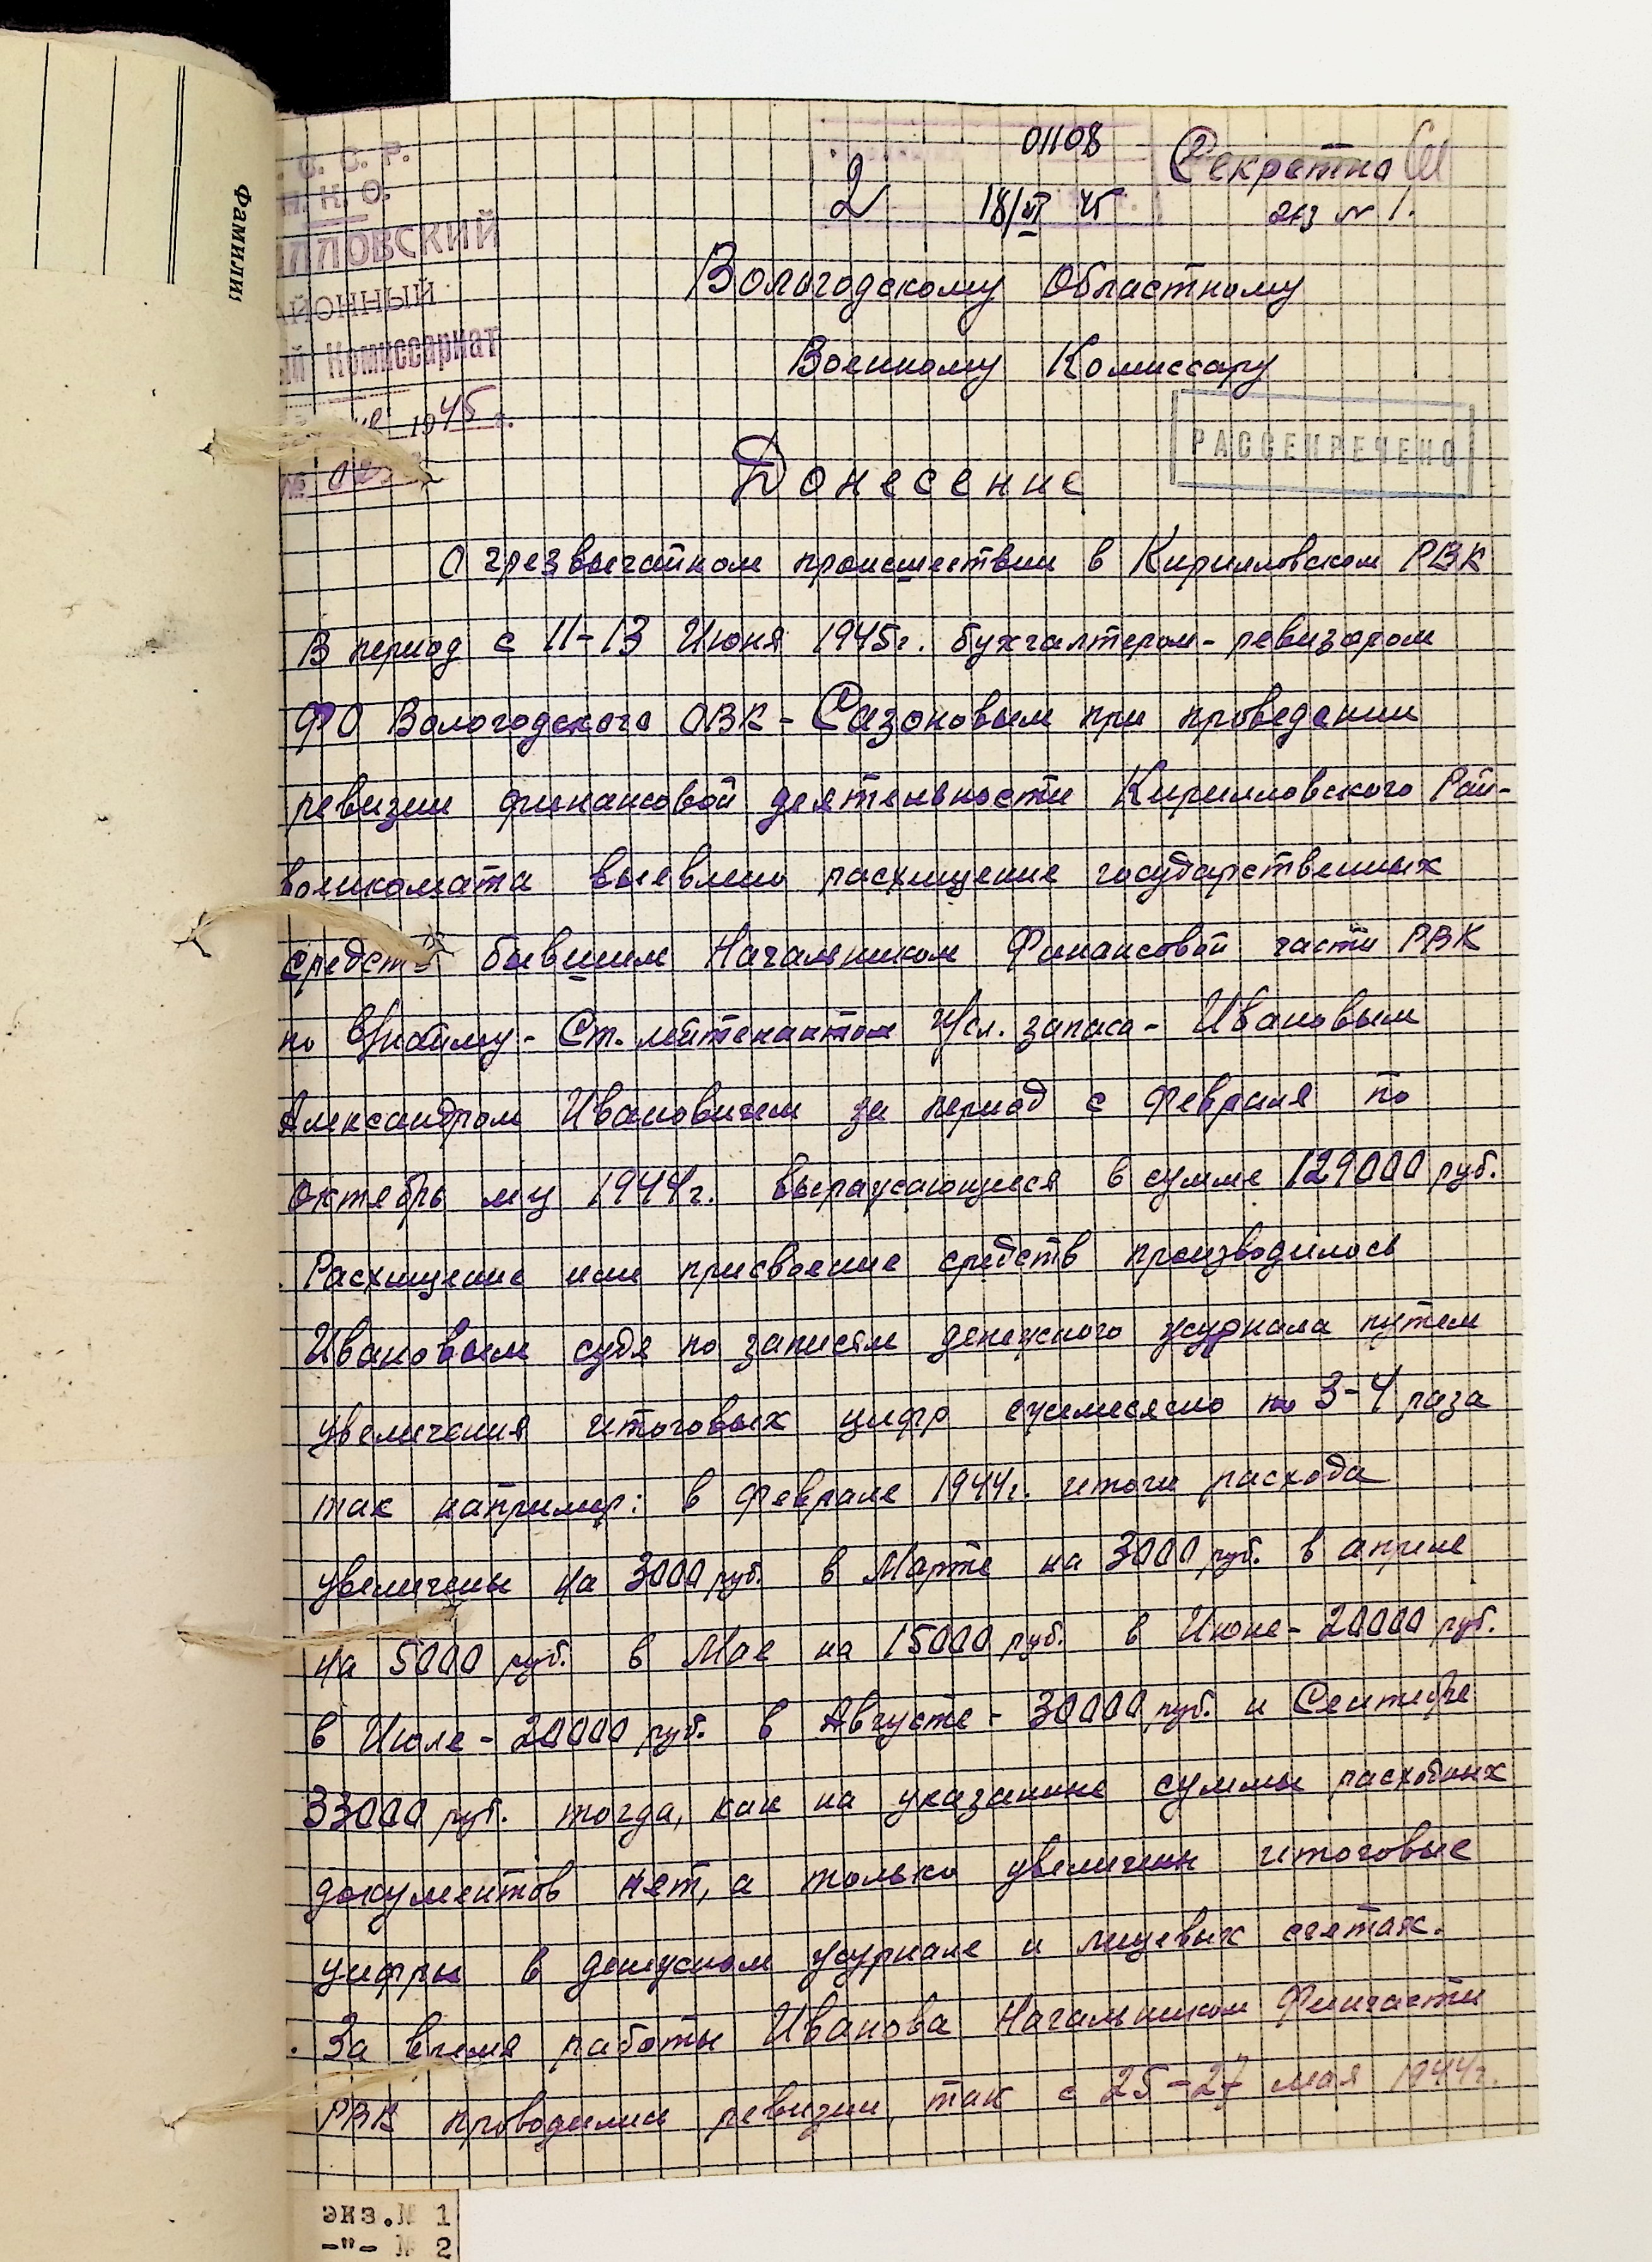 Фамилия
С. С. Р.
Н. К. О.
ИЛЛОВСКИЙ
АЙОННЫЙ
ый Комиссариат
1945 г.
№
01108
2
18/VI 45
Секретно
экз № 1.
Вологодскому Областному
Военному Комиссару
РАССЕКРЕЧЕНО
Донесение
О чрезвычайном происшествии в Кирилловском РВК
В период с 11-13 Июня 1945г. бухгалтером-ревизором
ФО Вологодского ОВК - Сазоновым при проведении
ревизии финансовой деятельности Кирилловского Рай-
военкомата выевлено расхищение государственных
средств бывшим Начальником Финансовой части РВК
по В/найму - Ст. лейтенантом И/сл. запаса - Ивановым
Александром Ивановичем за период с февраля по
октябрь м-ц 1944г. выражающиеся в сумме 129000 руб.
Расхищение или присвоение средств производилось
Ивановым судя по записям денежного журнала путем
увеличения итоговых цифр ежемесячно по 3-4 раза
так например: в феврале 1944г. итоги расхода
увеличены на 3000 руб. в Марте на 3000 руб. в апреле
на 5000 руб. в Мае на 15000 руб. в Июне - 20000 руб.
в Июле - 20000 руб. в Августе - 30000 руб. и Сентябре
33000 руб. тогда, как на указанные суммы расходных
документов нет, а только увеличены итоговые
цифры в денежном журнале и лицевых счетах.
За время работы Иванова Начальником Финчасти
РВК проводились ревизии, так с 25-27 мая 1944г.
экз.№ 1
-"- № 2